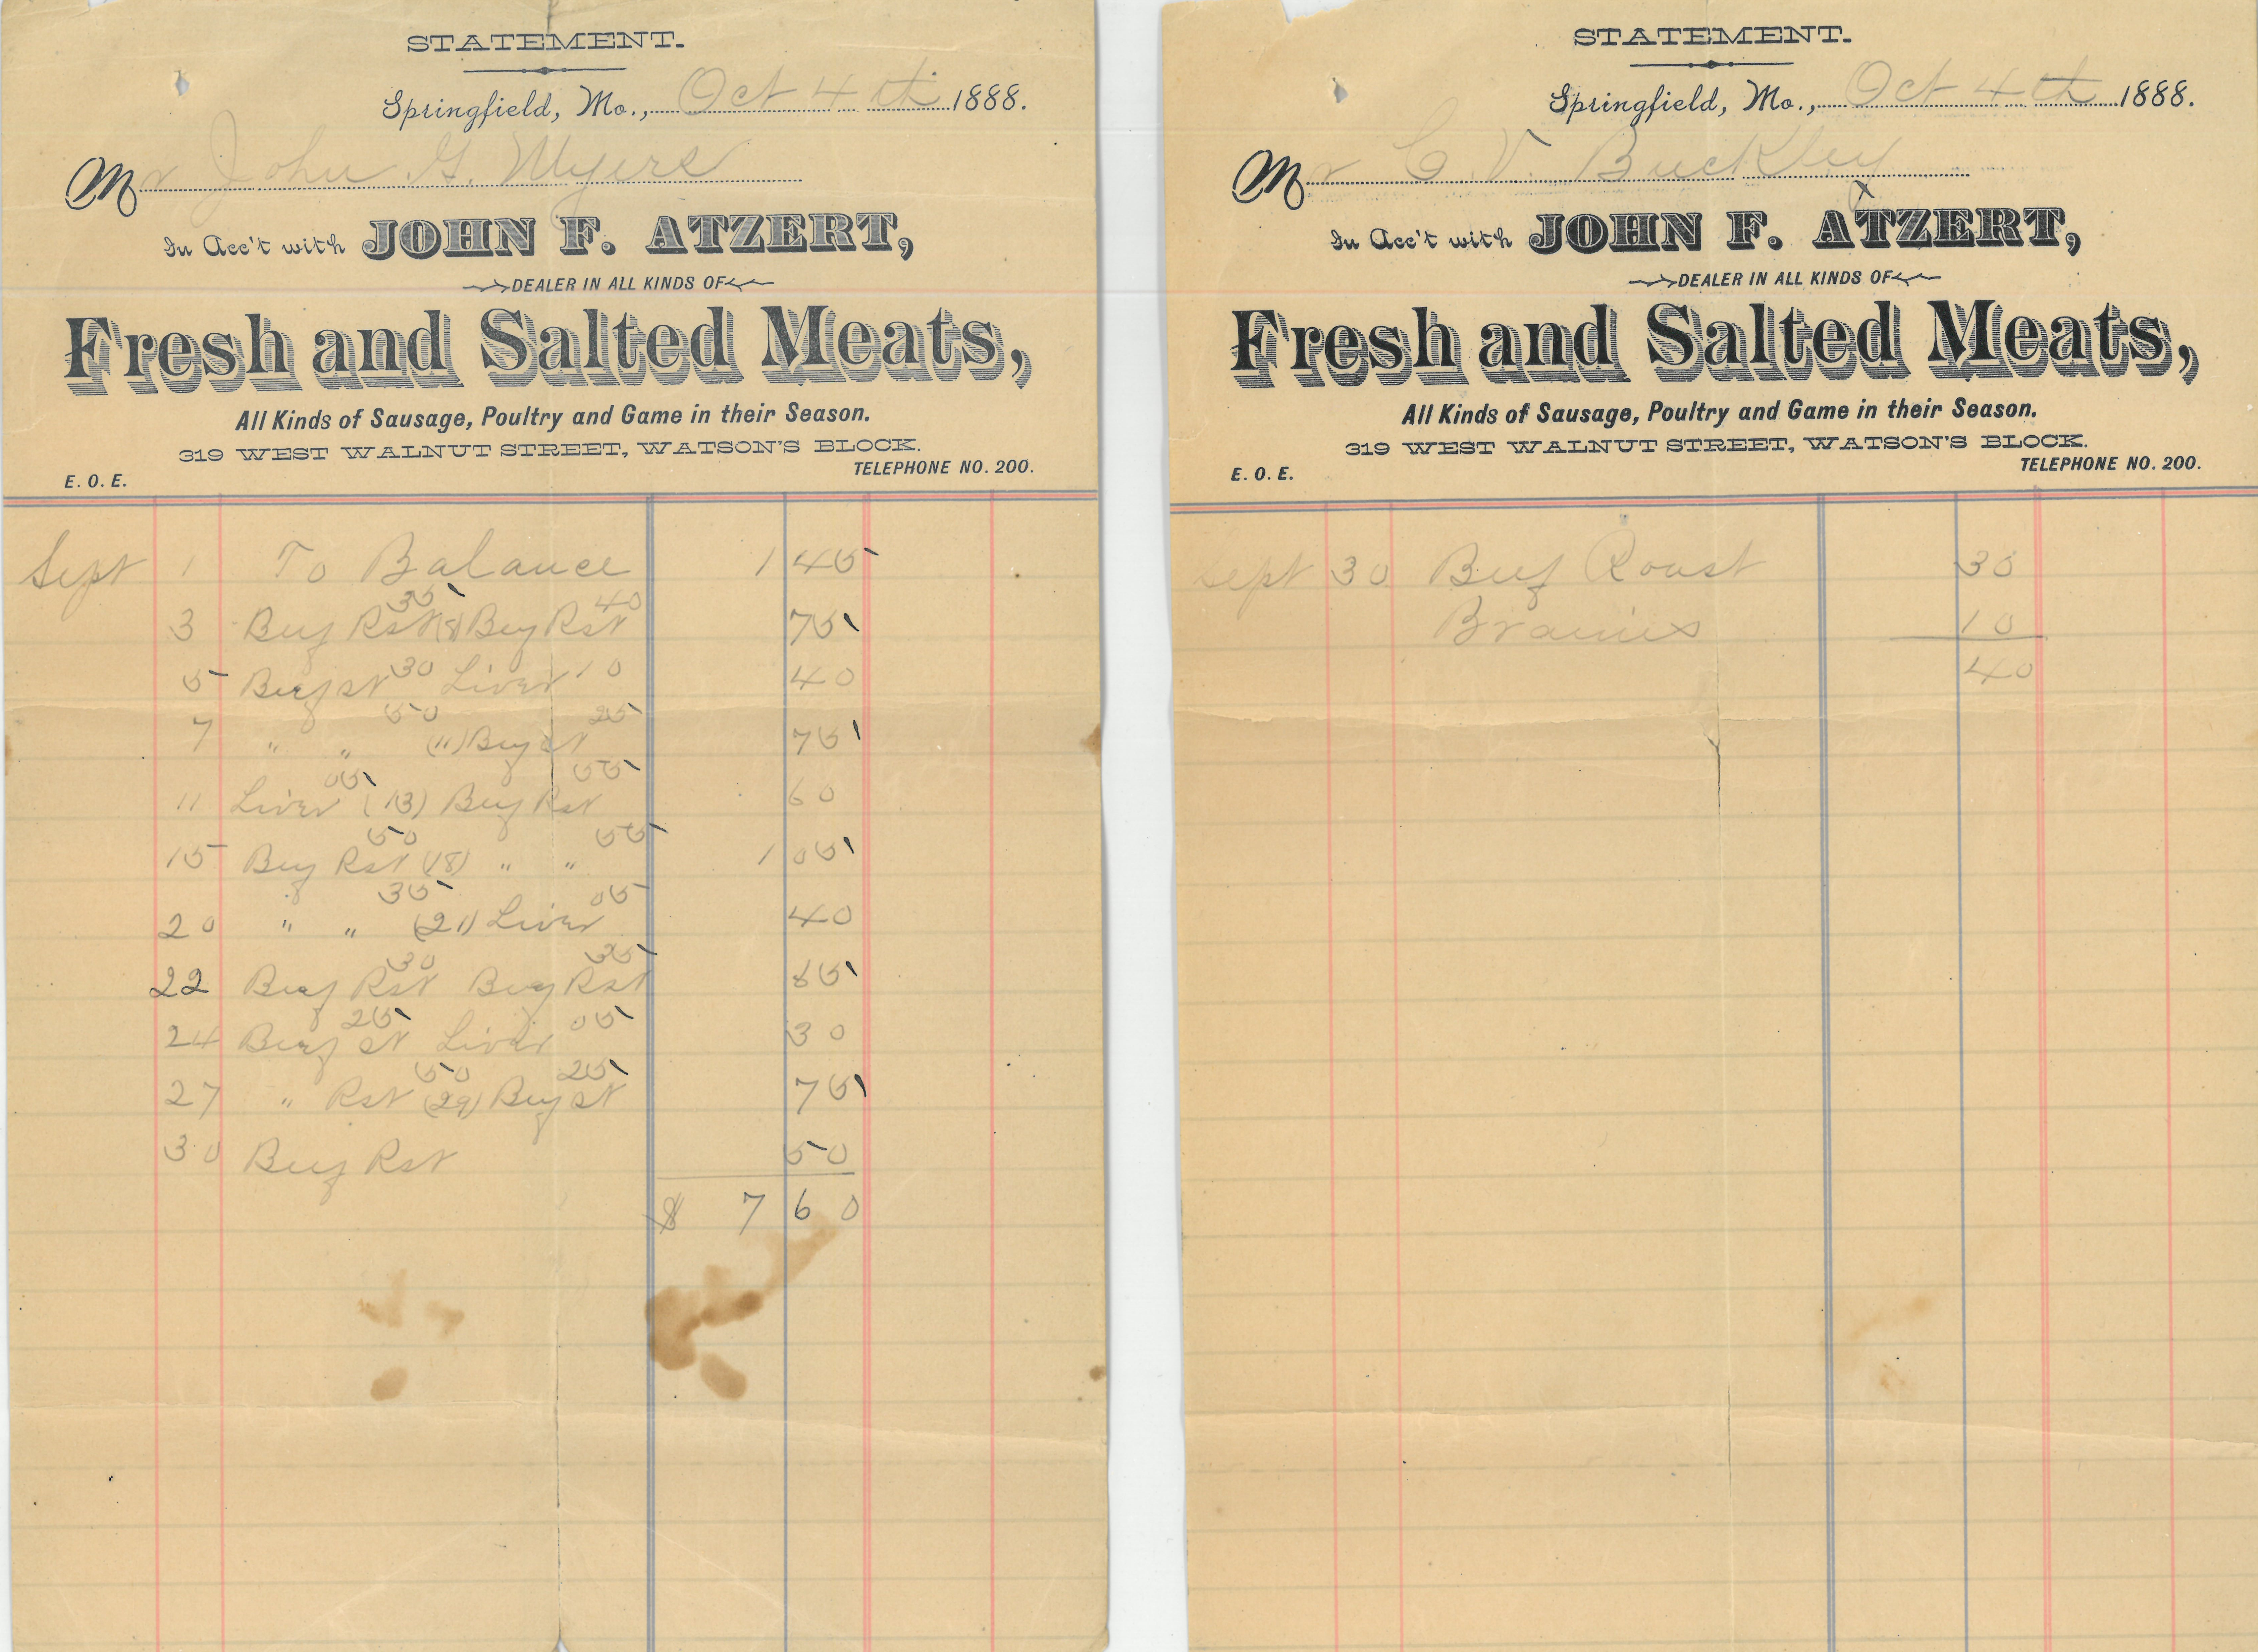 STATEMENT.
Springfield, Mo., Oct 4th 1888.
Mr John G. Myers
In Acc't with JOHN F. ATZERT,
DEALER IN ALL KINDS OF
Fresh and Salted Meats,
All Kinds of Sausage, Poultry and Game in their Season.
319 WEST WALNUT STREET, WATSON'S BLOCK.
TELEPHONE NO. 200.
E. O. E.
Sept 1 To Balance 1 45
35 40
3 Beef Rst (8) Beef Rst 75
5 Beef st 30 Liver 10 40
50 25
7 " " (11) Beef st 75
05 55
11 Liver (13) Beef Rst 60
50 55
15 Beef Rst (18) " " 1 05
35 05
20 " " (21) Liver 40
30 35
22 Beef Rst Beef Rst 65
25 05
24 Beef st Liver 30
50 25
27 " Rst (29) Beef st 75
30 Beef Rst 50
$ 7 60
STATEMENT.
Springfield, Mo., Oct 4th 1888.
Mr C. V. Buckley
In Acc't with JOHN F. ATZERT,
DEALER IN ALL KINDS OF
Fresh and Salted Meats,
All Kinds of Sausage, Poultry and Game in their Season.
319 WEST WALNUT STREET, WATSON'S BLOCK.
TELEPHONE NO. 200.
E. O. E.
Sept 30 Beef Roast 30
Brains 10
40